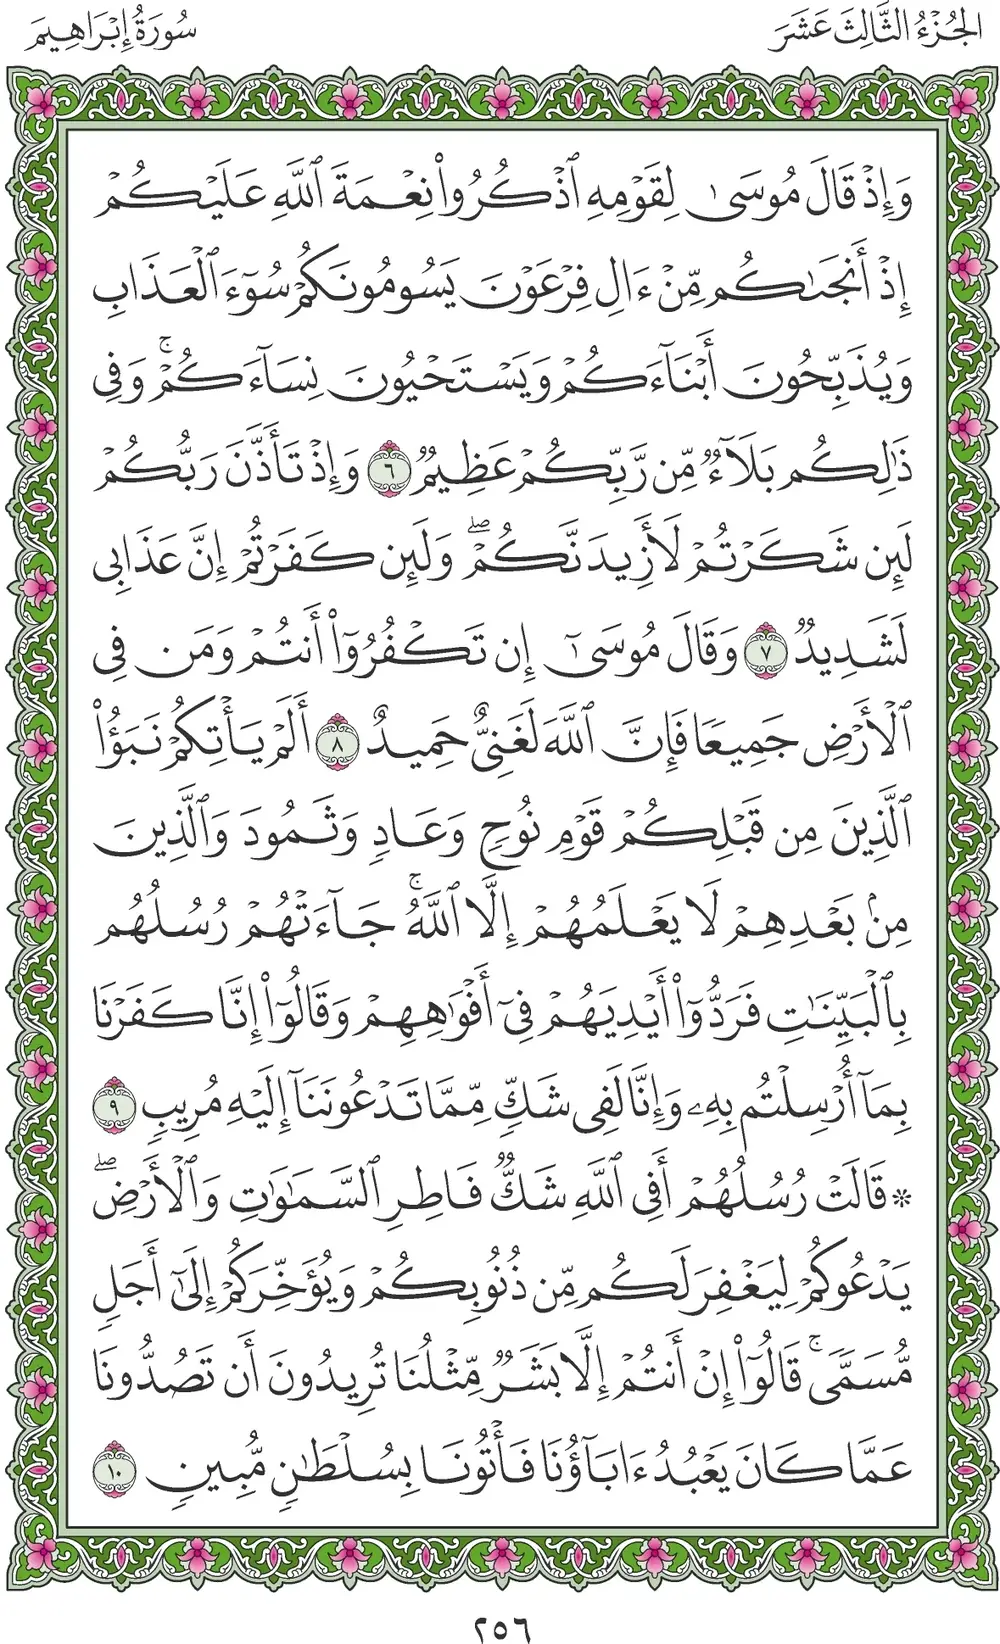 الجُزْءُ الثَّالِثَ عَشَرَ
سُورَةُ إِبْرَاهِيمَ
وَإِذْ قَالَ مُوسَىٰ لِقَوْمِهِ ٱذْكُرُوا۟ نِعْمَةَ ٱللَّهِ عَلَيْكُمْ
إِذْ أَنجَىٰكُم مِّنْ ءَالِ فِرْعَوْنَ يَسُومُونَكُمْ سُوٓءَ ٱلْعَذَابِ
وَيُذَبِّحُونَ أَبْنَآءَكُمْ وَيَسْتَحْيُونَ نِسَآءَكُمْ ۚ وَفِى
ذَٰلِكُم بَلَآءٌ مِّن رَّبِّكُمْ عَظِيمٌ ٦ وَإِذْ تَأَذَّنَ رَبُّكُمْ
لَئِن شَكَرْتُمْ لَأَزِيدَنَّكُمْ ۖ وَلَئِن كَفَرْتُمْ إِنَّ عَذَابِى
لَشَدِيدٌ ٧ وَقَالَ مُوسَىٰٓ إِن تَكْفُرُوٓا۟ أَنتُمْ وَمَن فِى
ٱلْأَرْضِ جَمِيعًا فَإِنَّ ٱللَّهَ لَغَنِىٌّ حَمِيدٌ ٨ أَلَمْ يَأْتِكُمْ نَبَؤُا۟
ٱلَّذِينَ مِن قَبْلِكُمْ قَوْمِ نُوحٍ وَعَادٍ وَثَمُودَ وَٱلَّذِينَ
مِنۢ بَعْدِهِمْ لَا يَعْلَمُهُمْ إِلَّا ٱللَّهُ ۚ جَآءَتْهُمْ رُسُلُهُم
بِٱلْبَيِّنَـٰتِ فَرَدُّوٓا۟ أَيْدِيَهُمْ فِىٓ أَفْوَٰهِهِمْ وَقَالُوٓا۟ إِنَّا كَفَرْنَا
بِمَآ أُرْسِلْتُم بِهِۦ وَإِنَّا لَفِى شَكٍّ مِّمَّا تَدْعُونَنَآ إِلَيْهِ مُرِيبٍ ٩
۞ قَالَتْ رُسُلُهُمْ أَفِى ٱللَّهِ شَكٌّ فَاطِرِ ٱلسَّمَـٰوَٰتِ وَٱلْأَرْضِ ۖ
يَدْعُوكُمْ لِيَغْفِرَ لَكُم مِّن ذُنُوبِكُمْ وَيُؤَخِّرَكُمْ إِلَىٰٓ أَجَلٍ
مُّسَمًّى ۚ قَالُوٓا۟ إِنْ أَنتُمْ إِلَّا بَشَرٌ مِّثْلُنَا تُرِيدُونَ أَن تَصُدُّونَا
عَمَّا كَانَ يَعْبُدُ ءَابَآؤُنَا فَأْتُونَا بِسُلْطَـٰنٍ مُّبِينٍ ١٠
٢٥٦